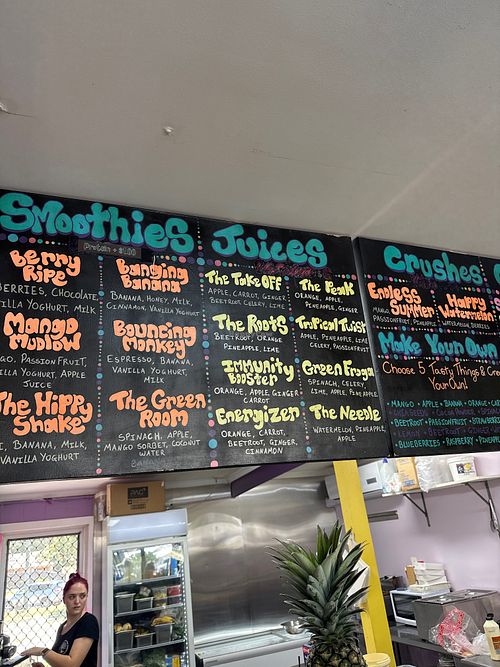 Smoothies
Protein + $1.00
Berry
Ripe
BERRIES, CHOCOLATE,
VANILLA YOGHURT, MILK
Mango
Mellow
PASSIONFRUIT,
YOGHURT, APPLE
JUICE
The Hippy
Shake
BANANA, MILK,
VANILLA YOGHURT
Banging
Banana
BANANA, HONEY, MILK,
CINNAMON, VANILLA YOGHURT
Bouncing
Monkey
ESPRESSO, BANANA,
VANILLA YOGHURT,
MILK
The Green
Room
SPINACH, APPLE,
MANGO SORBET, COCONUT
WATER
Juices
The Take Off
APPLE, CARROT, GINGER
BEETROOT, CELERY, LIME
The Roots
BEETROOT, ORANGE
PINEAPPLE, LIME
Immunity
Booster
ORANGE, APPLE, GINGER
CARROT
Energizer
ORANGE, CARROT,
BEETROOT, GINGER,
CINNAMON
The Peak
ORANGE, APPLE,
PINEAPPLE, GINGER
Tropical Twist
APPLE, PINEAPPLE, LIME
CELERY, PASSIONFRUIT
Green Frog
SPINACH, CELERY,
LIME, APPLE, PINEAPPLE
The Needle
WATERMELON, PINEAPPLE,
APPLE
Crushes
Endless
Summer
MANGO
PASSIONFRUIT, PINEAPPLE
Happy
Watermelon
WATERMELON, BERRIES
Make Your Own
Choose 5 Tasty Things &
Your Own!
MANGO • APPLE • BANANA • ORANGE
COCOA POWDER
BEETROOT • PASSIONFRUIT
BLUEBERRIES • RASPBERRY